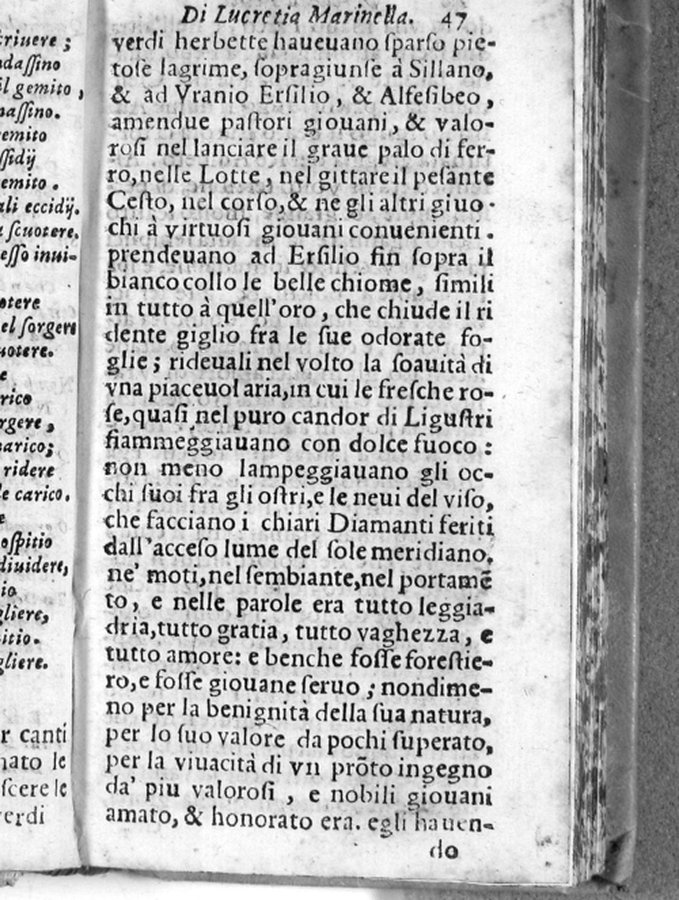 criuere ;
dassino
il gemito ,
nassino.
emito
ssidij
emito .
ali eccidij.
a scuotere,
esso inui-
otere
el sorgere
uotere.
e
rico
rgere ,
arico;
ridere
e carico.
e
ospitio
diuidere,
io
gliere,
itio.
gliere.
r canti
nato le
scere le
verdi
Di Lucretia Marinella. 47
verdi herbette haueuano sparso pie-
tose lagrime, sopragiunse à Sillano,
& ad Vranio Ersilio , & Alfesibeo ,
amendue pastori giouani , & valo-
rosi nel lanciare il graue palo di fer-
ro,nelle Lotte , nel gittare il pesante
Cesto, nel corso,& ne gli altri giuo-
chi à virtuosi giouani conuenienti .
prendeuano ad Ersilio fin sopra il
bianco collo le belle chiome , simili
in tutto à quell'oro , che chiude il ri
dente giglio fra le sue odorate fo-
glie ; rideuali nel volto la soauità di
vna piaceuol aria,in cui le fresche ro-
se,quasi nel puro candor di Ligustri
fiammeggiauano con dolce fuoco :
non meno lampeggiauano gli oc-
chi suoi fra gli ostri,e le neui del viso,
che facciano i chiari Diamanti feriti
dall'acceso lume del sole meridiano.
ne' moti,nel sembiante,nel portamẽ
to , e nelle parole era tutto leggia-
dria,tutto gratia , tutto vaghezza , e
tutto amore: e benche fosse forestie-
ro,e fosse giouane seruo ; nondime-
no per la benignità della sua natura,
per lo suo valore da pochi superato,
per la viuacità di vn prõto ingegno
da' piu valorosi , e nobili giouani
amato, & honorato era. egli hauen-
do